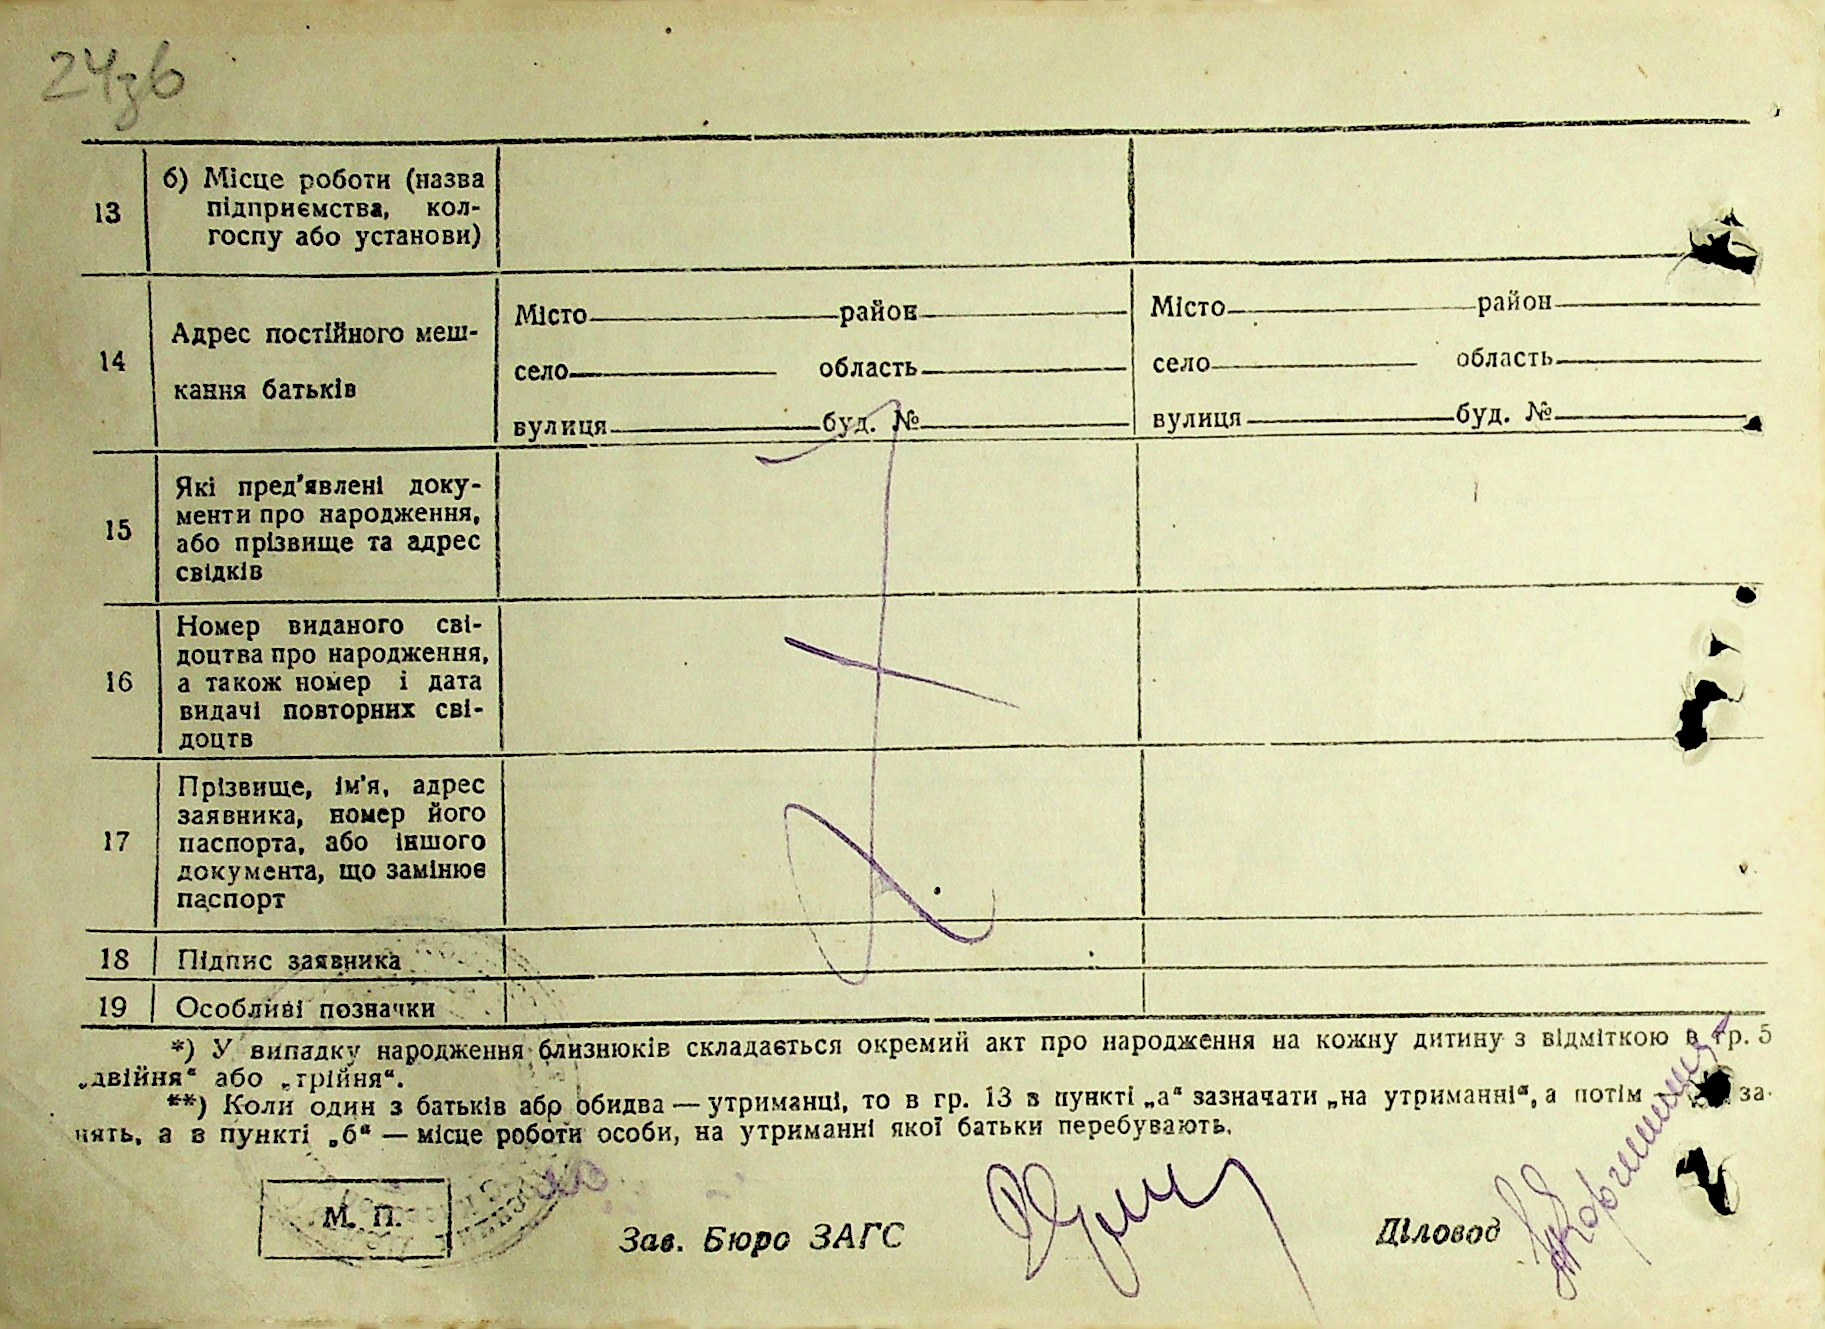 24зв
13
б) Місце роботи (назва
підприємства, кол-
госпу або установи)
14
Адрес постійного меш-
кання батьків
Місто район
село область
вулиця буд. №
Місто район
село область
вулиця буд. №
15
Які пред'явлені доку-
менти про народження,
або прізвище та адрес
свідків
16
Номер виданого сві-
доцтва про народження,
а також номер і дата
видачі повторних сві-
доцтв
17
Прізвище, ім'я, адрес
заявника, номер його
паспорта, або іншого
документа, що замінює
паспорт
18
Підпис заявника
19
Особливі позначки
*) У випадку народження близнюків складається окремий акт про народження на кожну дитину з відміткою в гр. 5
„двійня“ або „трійня“.
**) Коли один з батьків або обидва — утриманці, то в гр. 13 в пункті „а“ зазначати „на утриманні“, а потім за-
нять, а в пункті „б“ — місце роботи особи, на утриманні якої батьки перебувають.
М. П.
Зав. Бюро ЗАГС
Діловод